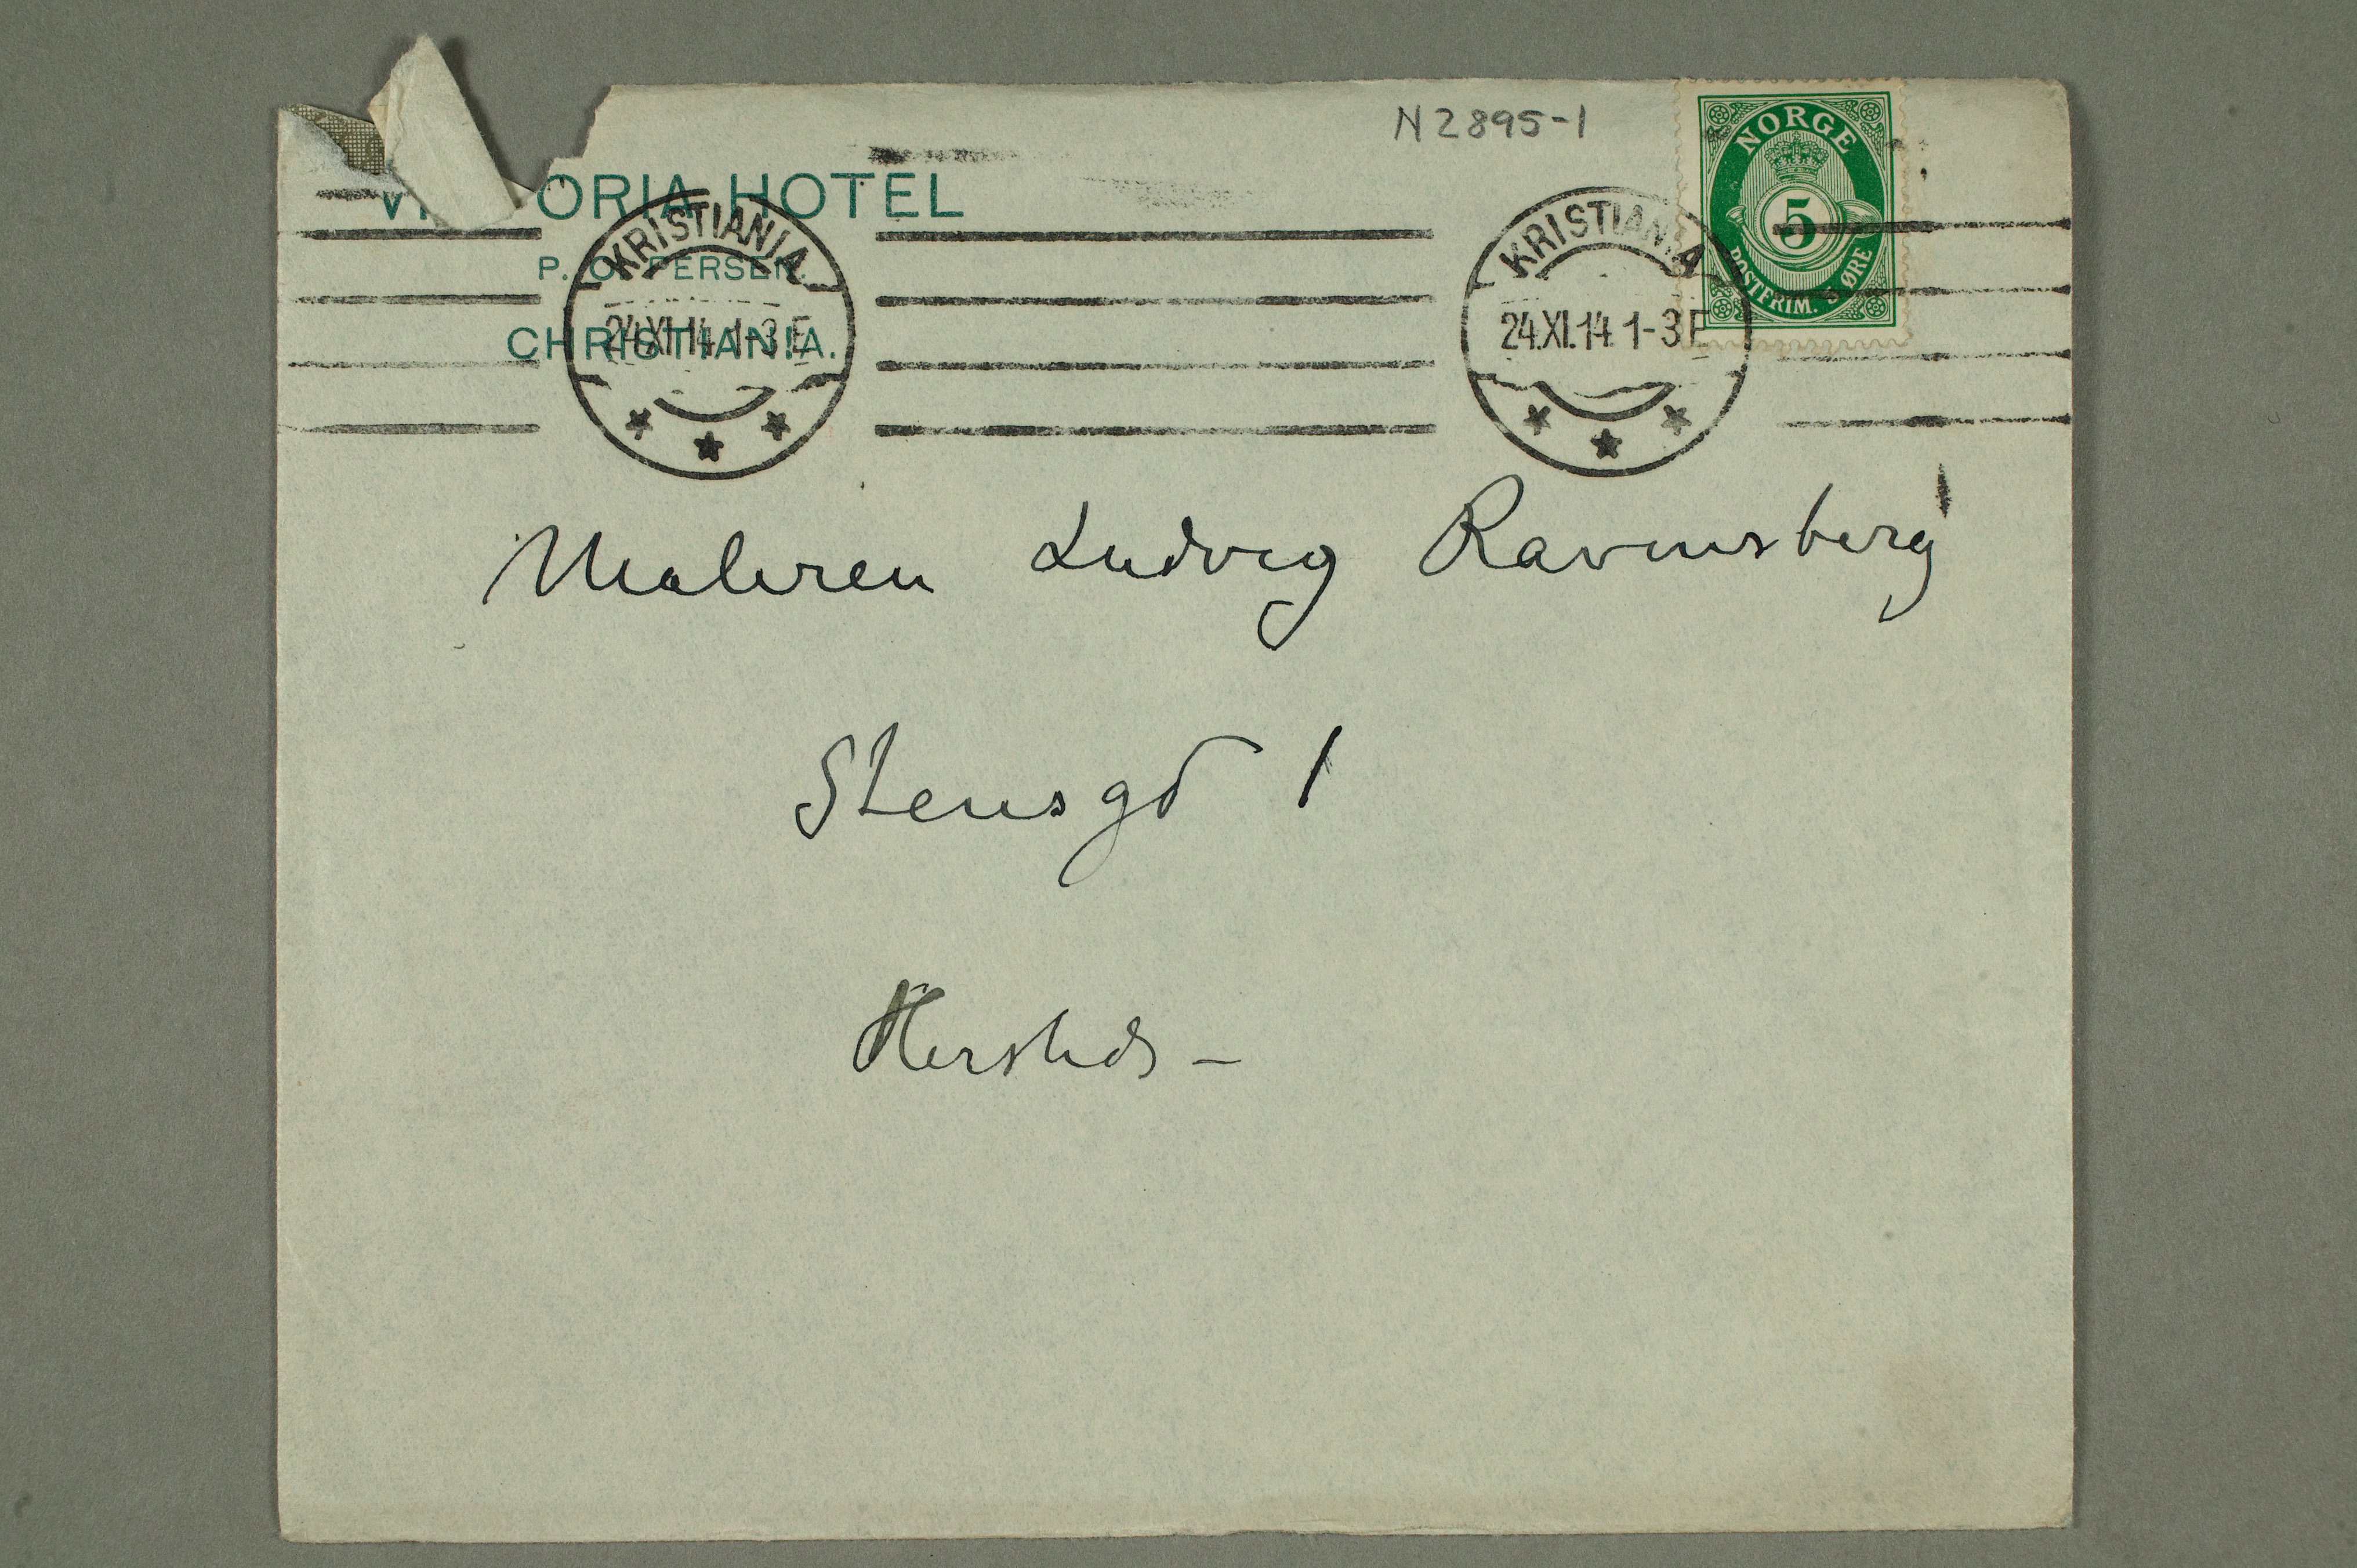 N 2895-1
NORGE
5
POSTFRIM. 5 ØRE
VICTORIA HOTEL
P. O. PERSEN.
CHRISTIANIA.
KRISTIANIA
24.XI.14.1-3 E
KRISTIANIA
24.XI.14 1-3 E
Maleren Ludvig Ravensberg
Stensgd 1
Hersteds –